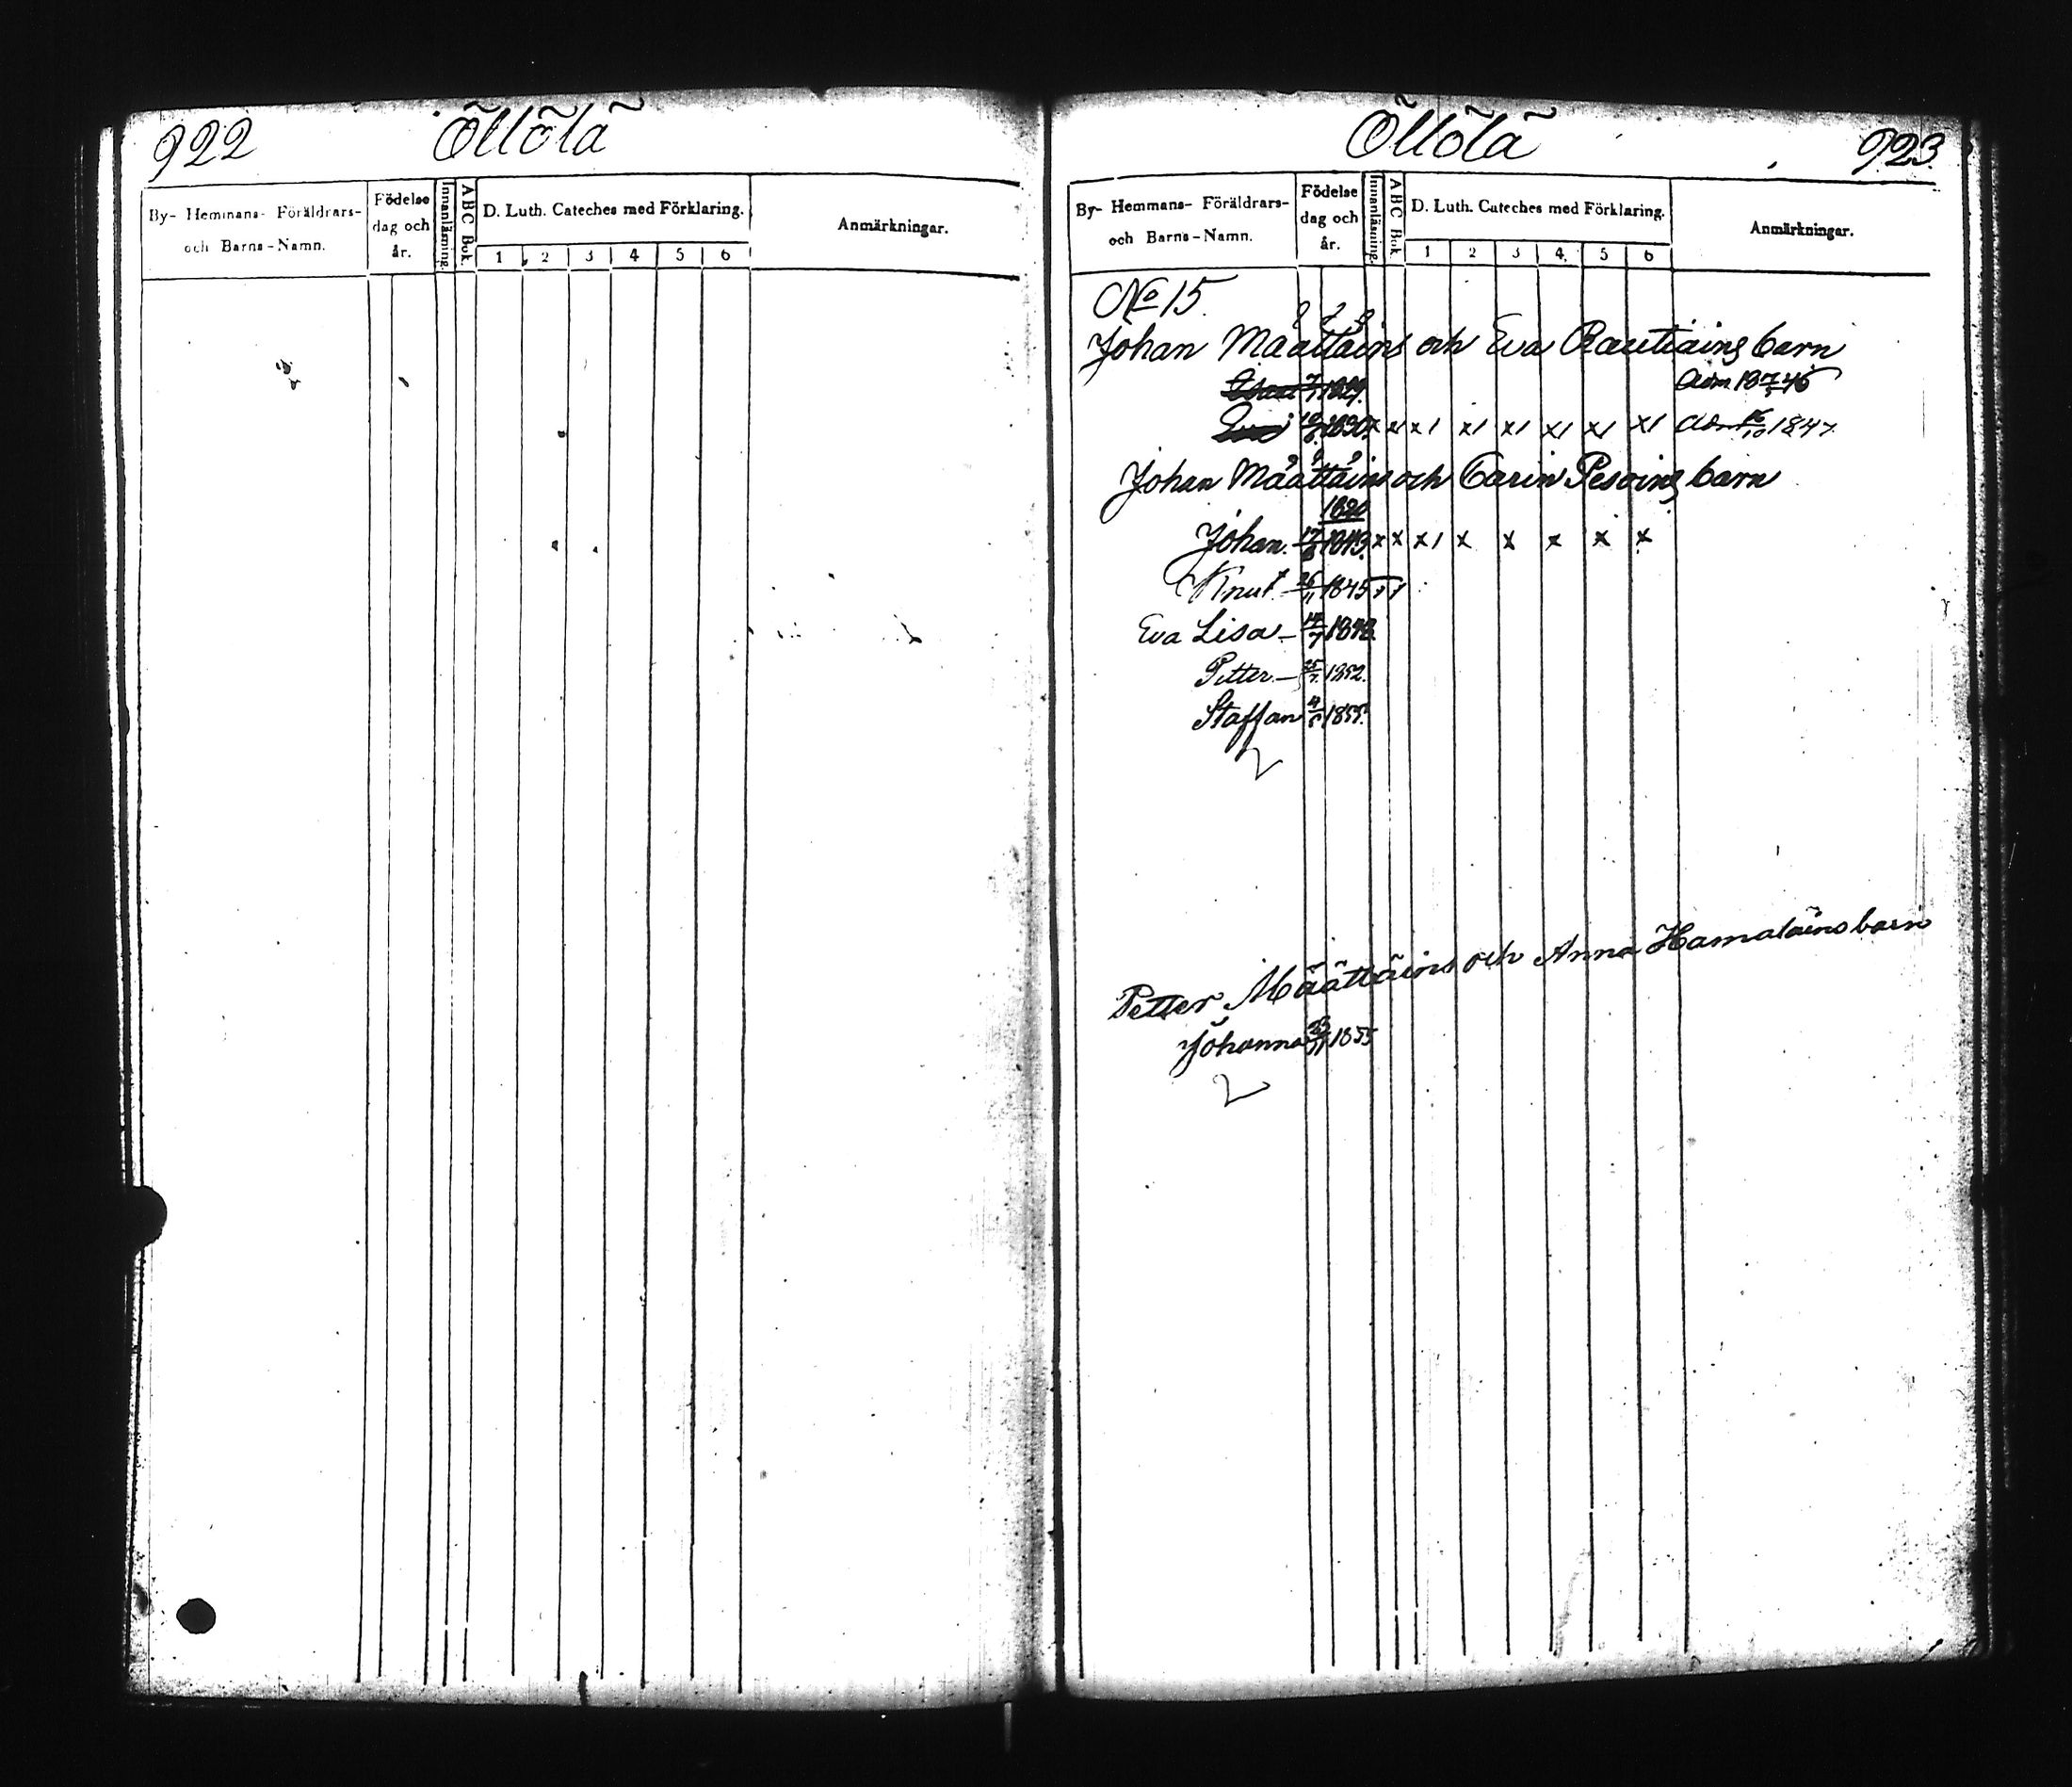 922 Öllölä
By- Hemmans- Föräldrars- och Barns-Namn.
Födelse dag och år.
Innanläsning.
ABC Bok.
D. Luth. Cateches med Förklaring.
1 2 3 4 5 6
Anmärkningar.
Öllölä 923.
By- Hemmans- Föräldrars- och Barns-Namn.
Födelse dag och år.
Innanläsning.
ABC Bok.
D. Luth. Cateches med Förklaring.
1 2 3 4 5 6
Anmärkningar.
No 15.
Johan Määttäins och Eva Rautiains barn
Adm. 18 46
1830. x x x1 x1 x1 x1 x1 x1 1847
Johan Määttäins och Carin Pesoins barn
1820
Johan 1843. x x x1 x x x x x
Knut 26/11 1845
Eva Lisa 1848.
Petter 25/7 1852.
Staffan 1855.
Petter Määttäins och Anna Hämäläins barn
Johanna 1855